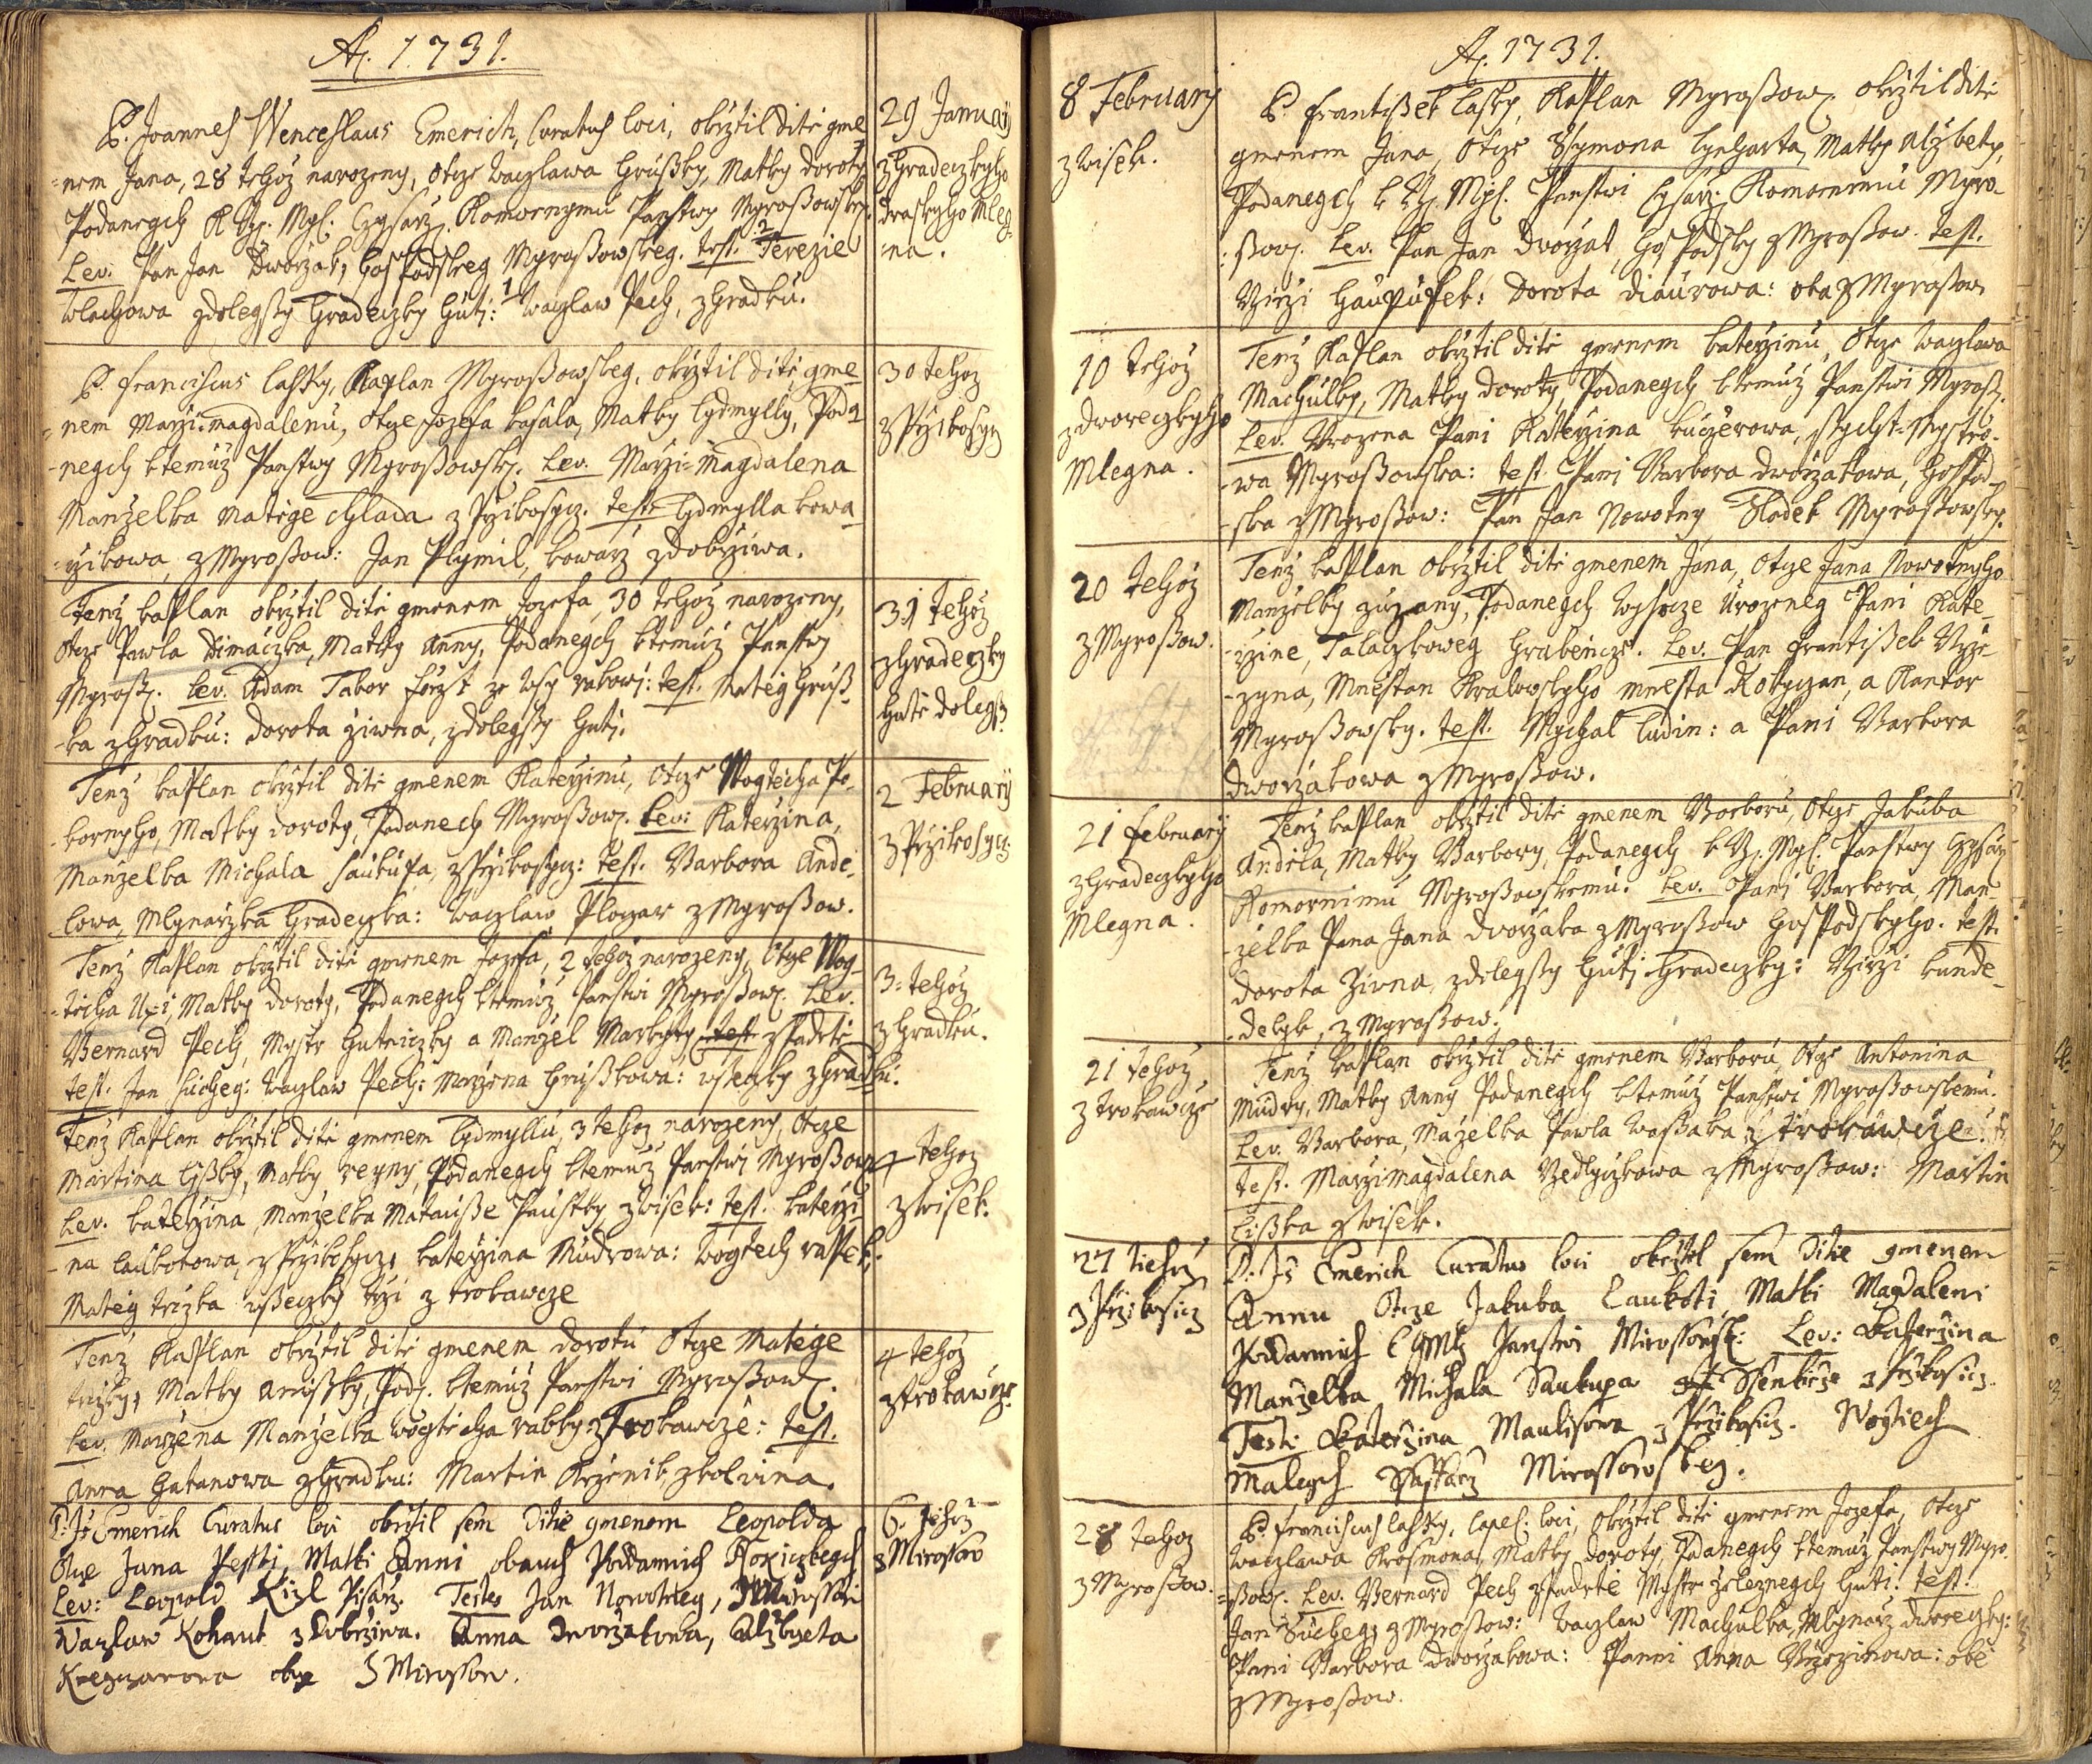 A. 1731.
P. Joannes Wenceslaus Emerich, Curatus loci, okrztil ditě gme
=nem Jana, 28 tehoz narozeny, otcze Waczlawa Hrussky, Matky doroty
Podanegch K Mgl: Czysarz. Komornymu Panstwy Myrossowsky.
Lev: Pan Jan Dworzak, Hospodskeg Myrossowskeg. test. 2 Terezie
Wlachowa zdolegssy Hradeczky Huti: 1 Waczlaw Pech, z Hradku.
29 January
z Hradeczkyho
draskyho Mleg
=na.
P. Franciscus Lassky, Kaplan Myrossowskeg, okrztil ditě, gme
=nem Marzi=magdalenu, otcze Jozefa kasala, Matky Lydmylly, Poda
-negch ktemuz Panstwy Myrossowsky. Lev. Marzi=Magdalena
Manzelka Matege chlada z Przikosycz. teste Lydmylla kowa-
-rzikowa, z Myrossow: Jan Plymil, kowarz z dobrziwa.
30 tehoz
z Przikosycz
Tenz kaplan okrztil ditě gmenem Jozefa, 30 tehoz narozeny,
otcze Pawla dimaczka, Matky Anny, Podanegch ktemuz Panstwy
Myross. Lev. Adam Tabor forst ze wsy rakowi: test. Mateg Hruss-
-ka z Hradku: dorota ziwna, z dolegssy Huti.
31 tehoz
z Hradeczky
Hutě dolegss.
Tenz kaplan okrztil ditě gmenem Katerzinu, otcze Wogtecha Po-
-kornyho, Matky doroty, Podanech Myrossow. Lev: Katerzina,
Manzelka Michala Saukupa, z Przikosycz: test. Barbora Ande-
lowa, Mlynarzka Hradeczka: Waczlaw Plozar z Myrossow.
2 February
z Przikosycz.
Tenz Kaplan okrztil ditě gmenem Jozefa, 2 tehoz narozeny, otcze Wog-
-techa Uxi, Matky doroty, Podanegch ktemuz Panstwi Myrossow. Lev.
Bernard Pech, Mystr Hutniczky a Manzel Markyty z Padrtě
test. Jan Sucheg: Waczlaw Pech: Marzena Hrusskowa: wseczky z Hradku.
3. tehoz
z Hradku.
Tenz Kaplan okrztil ditě gmenem Lydmyllu, 3 tehoz narozeny, otcze
Martina Lissky, Matky reyny, Podanegch ktemuz Panstwi Myrossow
Lev. katerzina, Manzelka Matausse Paustky z wisek: test. katerzi-
-na laukotowa, z Przikosycz, katerzina Mudrowa: Wogtech rasek:
Mateg trczka wsseczky trzi z trokawcze
4 tehoz
z wisek.
Tenz Kaplan okrztil ditě gmenem dorotu otcze Matege
trczky, Matky anissky, Pod. ktemuz Panstwi Myrossow.
Lev. Marzena Manzelka Wogtecha rabky z Trokawcze: test.
Anna Hatanowa z Hradku: Martin Krzenik z kolwina.
4 tehoz
z trokawcze.
P. Js Emerich Curatus loci okrztil sem ditie gmenem Leopolda
Otcze Jana Pesski, Matki Anni obauch Poddannich Rokiczkegch
Lev: Leopold Kizl Pisarz. Testes Jan Nowotneg, z Mirossow
Wazlaw Kohaut z Dobrziwa. Anna Dworzakowa, Alzbieta
obie z Mirossow.
6. tehoz
z Mirossow
A. 1731.
8 February
z wisek.
P. Frantissek Lasky, Kaplan Myrossow. okrztil ditě
gmenem Jana, otcze Ssymona Lynharta, Matky Alzbety,
Podanegch k Mgl. Panstwi Cysarz. Komornimu Myro
:ssow. Lev. Pan Jan dvorzak, Hospodsky z Myrossow. test.
Girzi Haupusek: dorota diaurowa: oba z Myrossow
10 tehoz
z dworeczkyho
Mlegna.
Tenz Kaplan okrztil ditě gmenem katerzinu, otcze Waczlawa
Machulky, Matky doroty, Podanegch ktemuz Panstwi Myross.
Lev. Urozena Pani Katerzina kuczerowa, -Mystro-
-wa Myrossowska: test. Pani Barbora dworzakowa, Hospod-
-ska z Myrossow: Pan Jan Nowotny Sladek Myrossowsky.
20 tehoz
z Myrossow.
Tenz kaplan okrztil ditě gmenem Jana, otcze Jana Nowotnyho
Manzelky zuzany, Podanegch Wysocze Urozeneg Pani Kate-
-rzine, Talaczkoweg Hrabencze. Lev. Pan Frantissek
-zyna, Mnestan Kralowskyho mnesta Rokyczan, a Kantor
Myrossowsky. test. Mychal Ludin: a Pani Barbora
dworzakowa z Myrossow.
21 February
z Hradeczkyho
Mlegna.
Tenz kaplan okrztil ditě gmenem Barboru, otcze Jakuba
Anděla, Matky Barbory, Podanegch k Mgl: Panstwy Czysarz
Komornimu Myrossowskemu. Lev. Pani Barbora, Man-
-zelka Pana Jana dvorzaka z Myrossow Hospodskyho. test.
dorota Zivna, z dolegssy Huti Hradeczky: Girzi kunde-
-delyk, z Myrossow.
21 tehoz
z trokawcze
Tenz kaplan okrztil ditě gmenem Barboru, otcze Antonina
Mudry, Matky Anny Podanegch ktemuz Panstwi Myrossowskemu.
Lev. Barbora, Mazelka Pawla Wassaka z trokawcze.
test. Marzimagdalena z Myrossow: Martin
Lisska z wisek.
27 tiehoz
z Przikosicz
P. Js Emerich Curatus loci okrztil sem ditie gmenem
Annu Otcze Jakuba Laukoti, Matki Magdaleni
Poddannich Panstwi Mirossowsk: Lev: Katerzina
Manzelka Michala Saukupa Ssenkirze z Przikosicz.
Testi Katerzina Maulisowa z Przikosicz. Wogtiech
Malegch Ssaffarz Mirossowskeg.
28 tehoz
z Myrossow.
P. Franciscus Lassky, Capel: loci, okrztil ditě gmenem Jozefa, otcze
Waczlawa Krosmona, Matky doroty, Podanegch ktemuz Panstwy Myro-
=ssow. Lev. Bernard Pech z Padrtě Mystr zeleznegch Huti. test.
Jan Sucheg z Myrossow: Waczlaw Machulka, Mlynarz dworeczky:
Pani Barbora dworzakowa: Panni Anna : obě
z Myrossow.